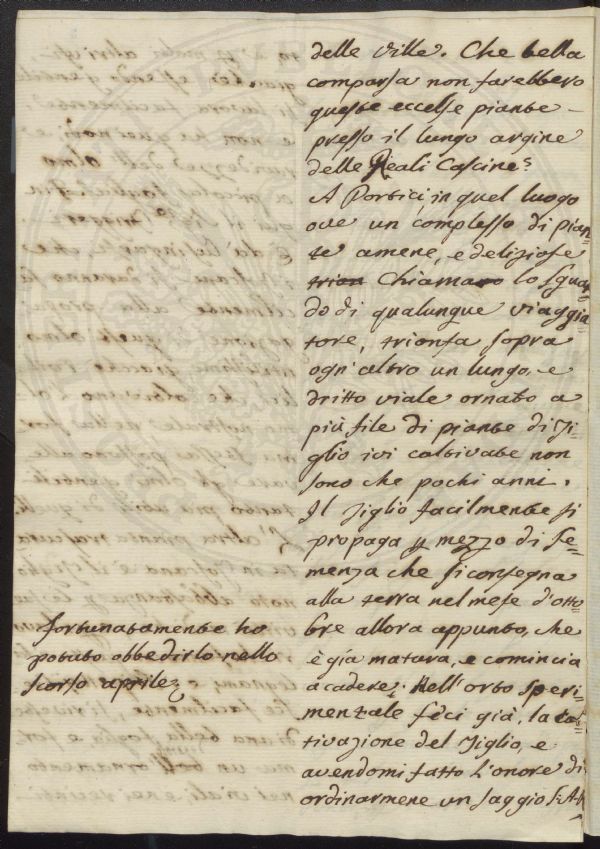 delle ville. Che bella
comparsa non farebbero
queste eccelse piante
presso il lungo argine
delle Reali Cascine?
A Portici, in quel luogo
ove un complesso di pian=
te amene, e deliziose
trion chiamano lo sguar=
do di qualunque viaggia=
tore, trionfa sopra
ogn'altro un lungo, e
dritto viale ornato a
più file di piante di Ti=
glio ivi coltivate non
sono che pochi anni.
Il Tiglio facilmente si
propaga p mezzo di se=
menza che si consegna
alla terra nel mese d'otto=
bre allora appunto, che
è gia matura, e comincia
a cadere; Nell'orto speri=
mentale feci già, la col=
tivazione del Tiglio, e
avendomi fatto l'onore di
ordinarmene un saggio S: A:
fortunatamente ho
potuto obbedirlo nello
scorso aprile